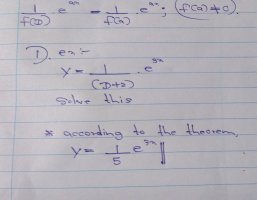 1/f(D) . e^ax = 1/f(a) . e^ax ; f(a) ≠ 0.
① . ex :-
y = 1/(D+2) . e^3x
Solve this
* according to the theorem,
y = 1/5 e^3x //